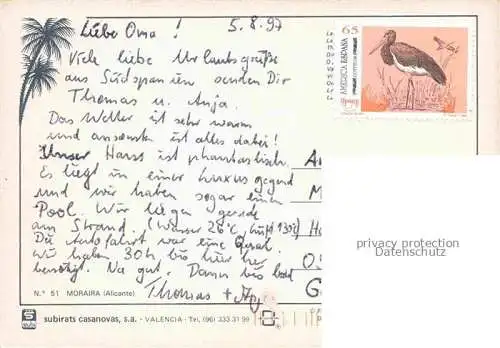 Liebe Oma! 5.8.97
Viele liebe Urlaubsgrüße
aus Südspanien senden Dir
Thomas u. Anja.
Das Wetter ist sehr warm
und ansonsten ist alles dabei!
Unser Haus ist phantastisch.
Es liegt in einer Luxusgegend
und wir haben sogar einen
Pool. Wir liegen gerade
am Strand. (Wasser 26°C, Luft 30°C)
Die Autofahrt war eine Qual.
Wir haben 30h bis hier her
benötigt. Na gut. Dann bis bald
Thomas + Anja
65
AMERICA ESPAÑA
CORREOS
N.º 51 MORAIRA (Alicante)
subirats casanovas, s.a. - VALENCIA - Tel. (96) 333 31 99
privacy protection
Datenschutz